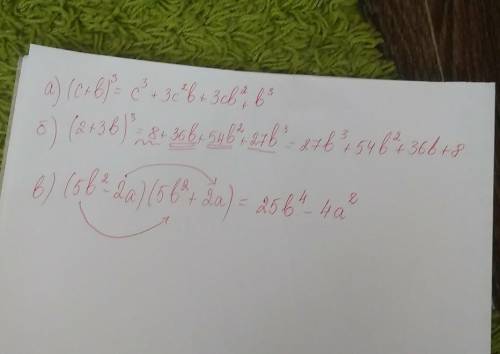 а) (c+b)³ = c³ + 3c²b + 3cb² + b³
б) (2+3b)³ = 8 + 36b + 54b² + 27b³ = 27b³ + 54b² + 36b + 8
в) (5b² - 2a)(5b² + 2a) = 25b⁴ - 4a²